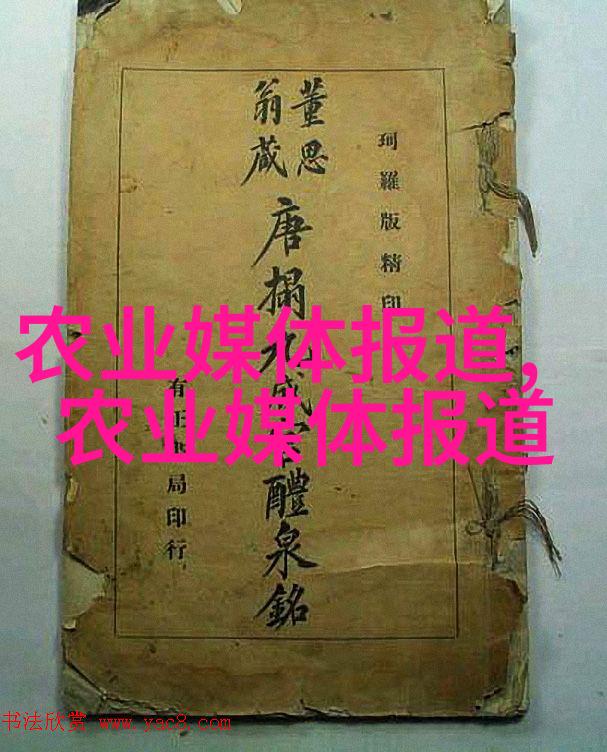 珂羅版精印
董思
翁藏
唐搨九成宮醴泉銘
有正書局印行
农业媒体报道,
农业媒体报道
书法欣赏 www.yac8.com